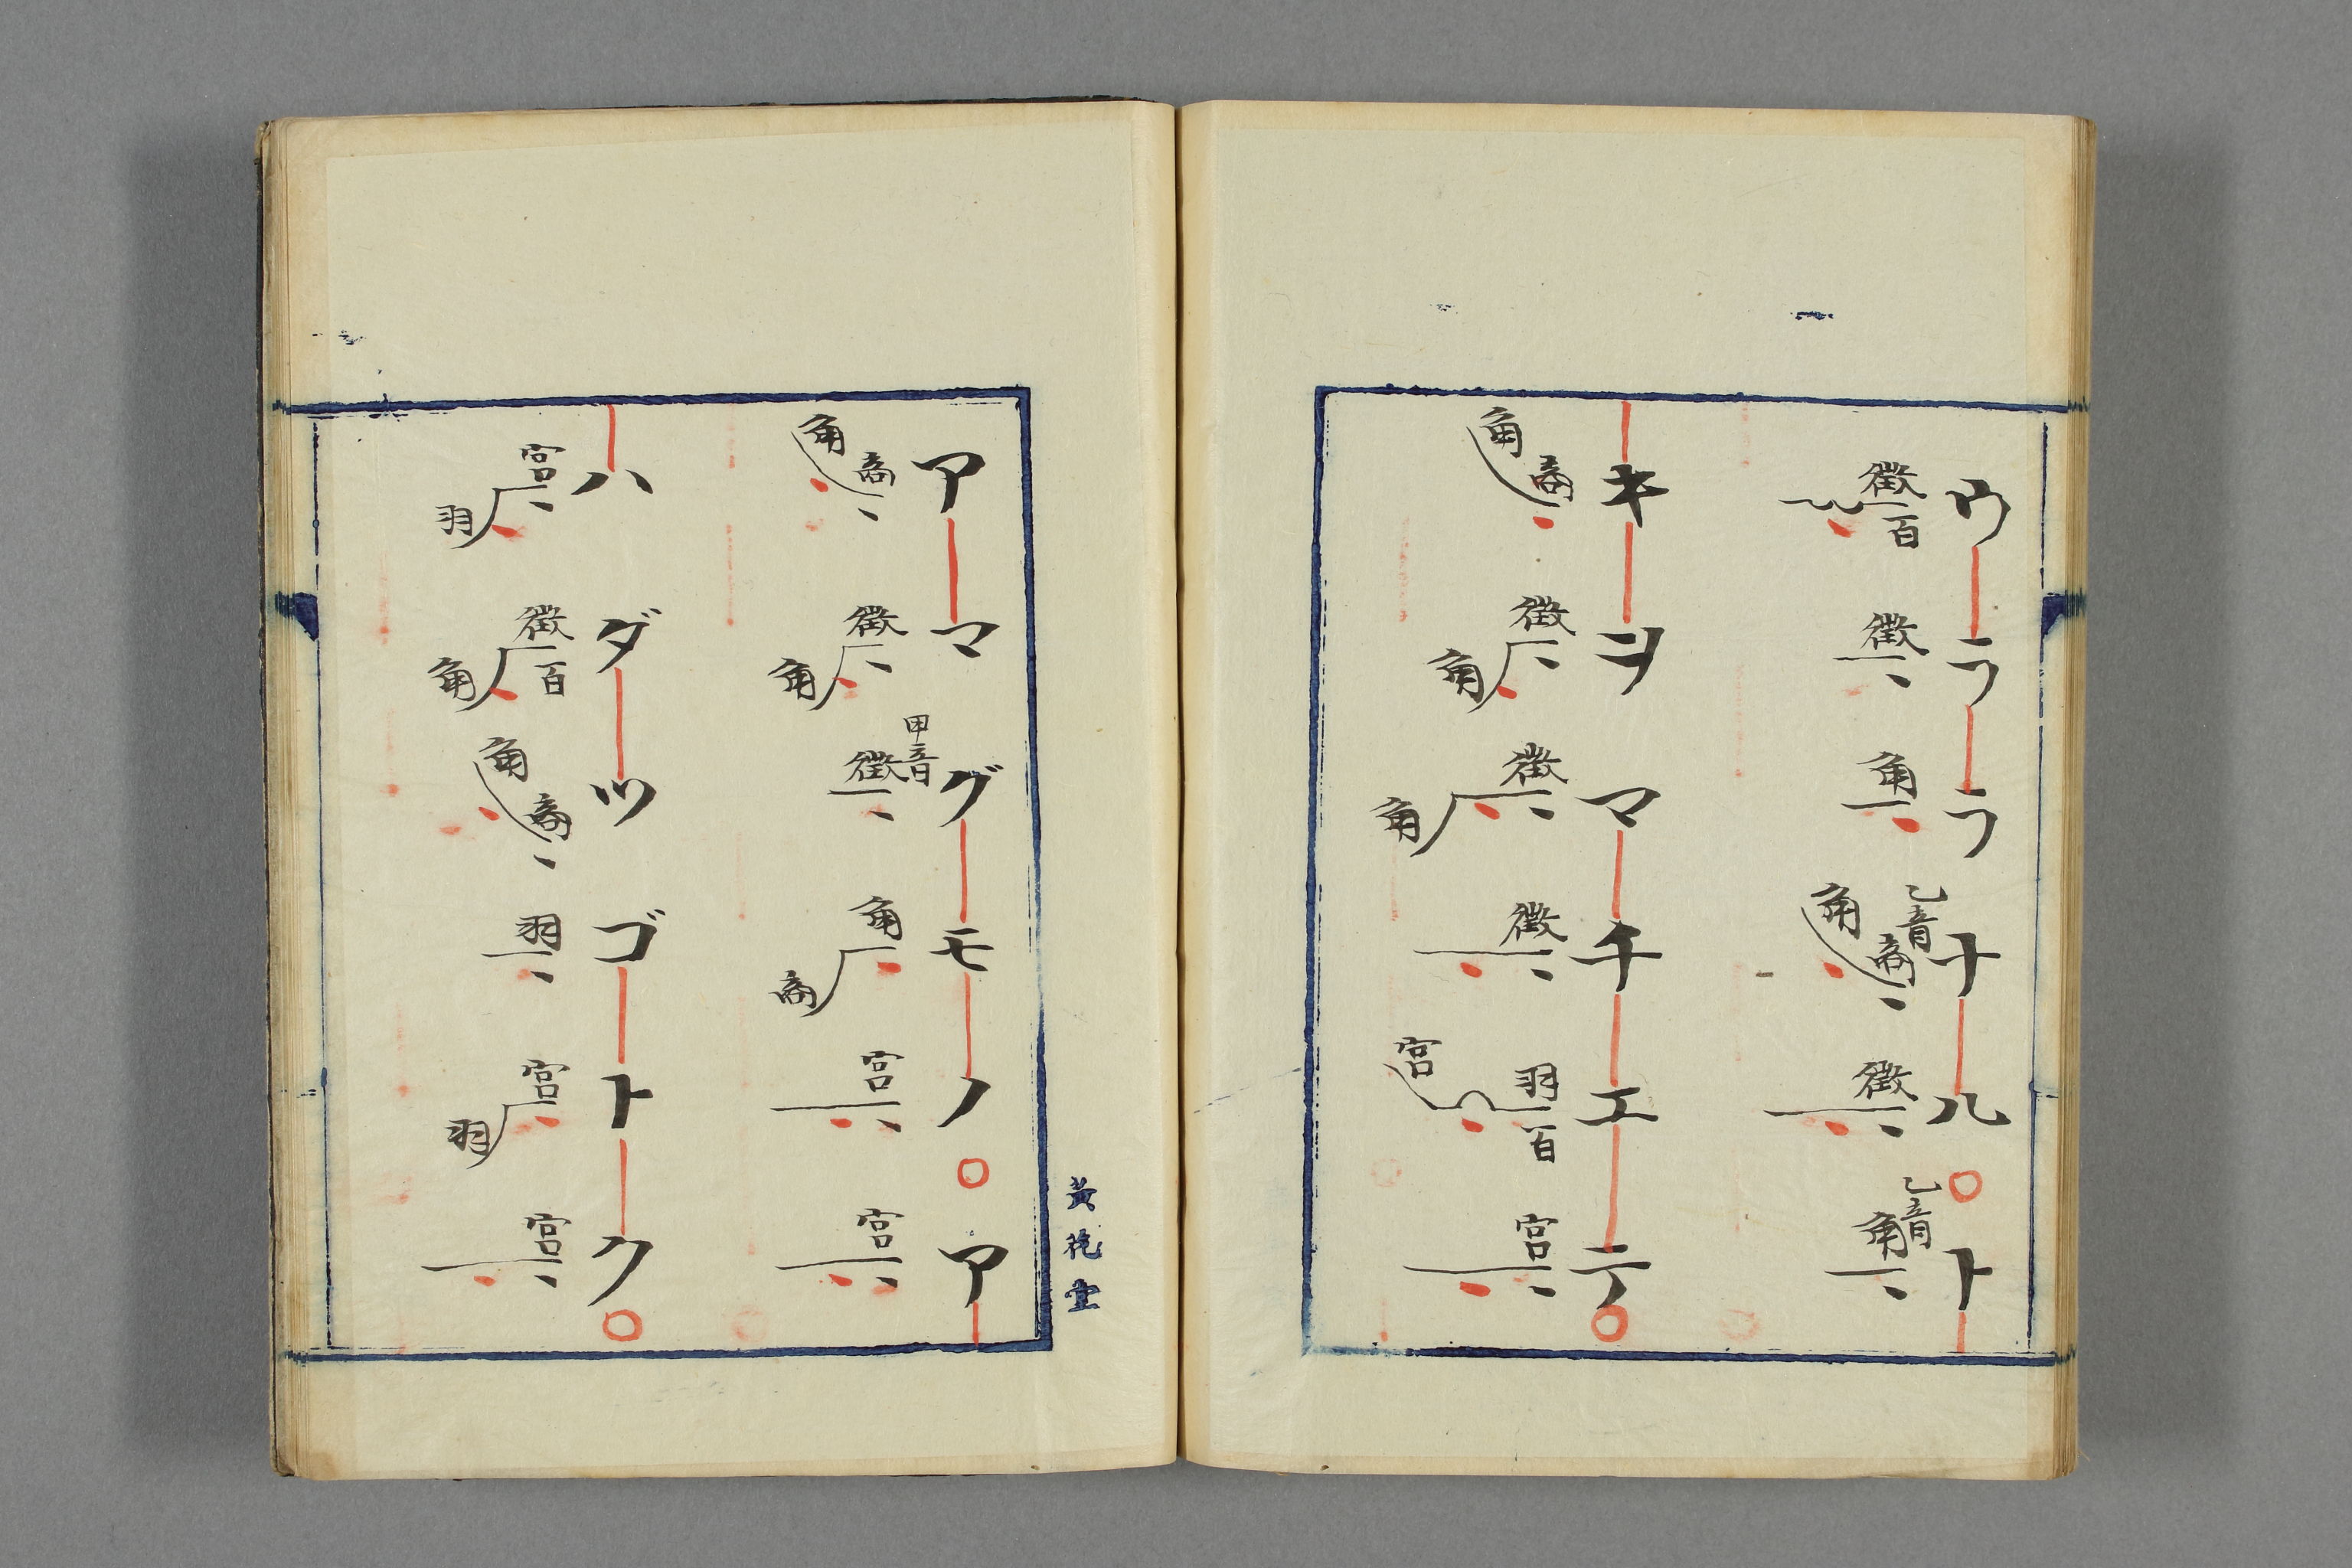 ウララナル○ト
徵百 徵 角 乙音 角商 徵 乙音 角
キヲマチエテ○
角商 徵角 徵角 徵 羽百宮 宮
アマグモノ○ア
角商 徵角 甲音 徵 角商 宮 宮
ハダツゴトク○
宮羽 徵百角 角商 羽 宮羽 宮